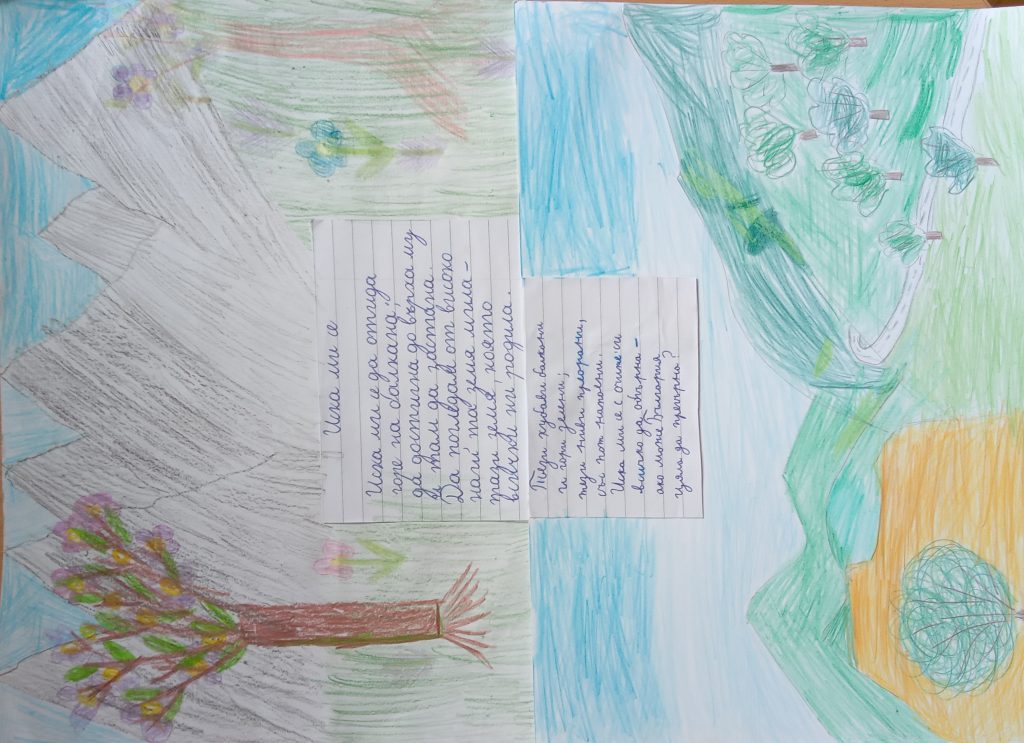 Иска ми се
Иска ми се да отида
горе на балкана,
да достигна до върха му
и там да застана.
Да погледам от високо
нашта земя мила -
тази земя, която
всички ни родила.
Тези хубави балкани
и гори зелени,
тези ниви преорани,
със пот напоени.
Иска ми се с очите си
всичко да обърна -
ако може България
цяла да прегърна?